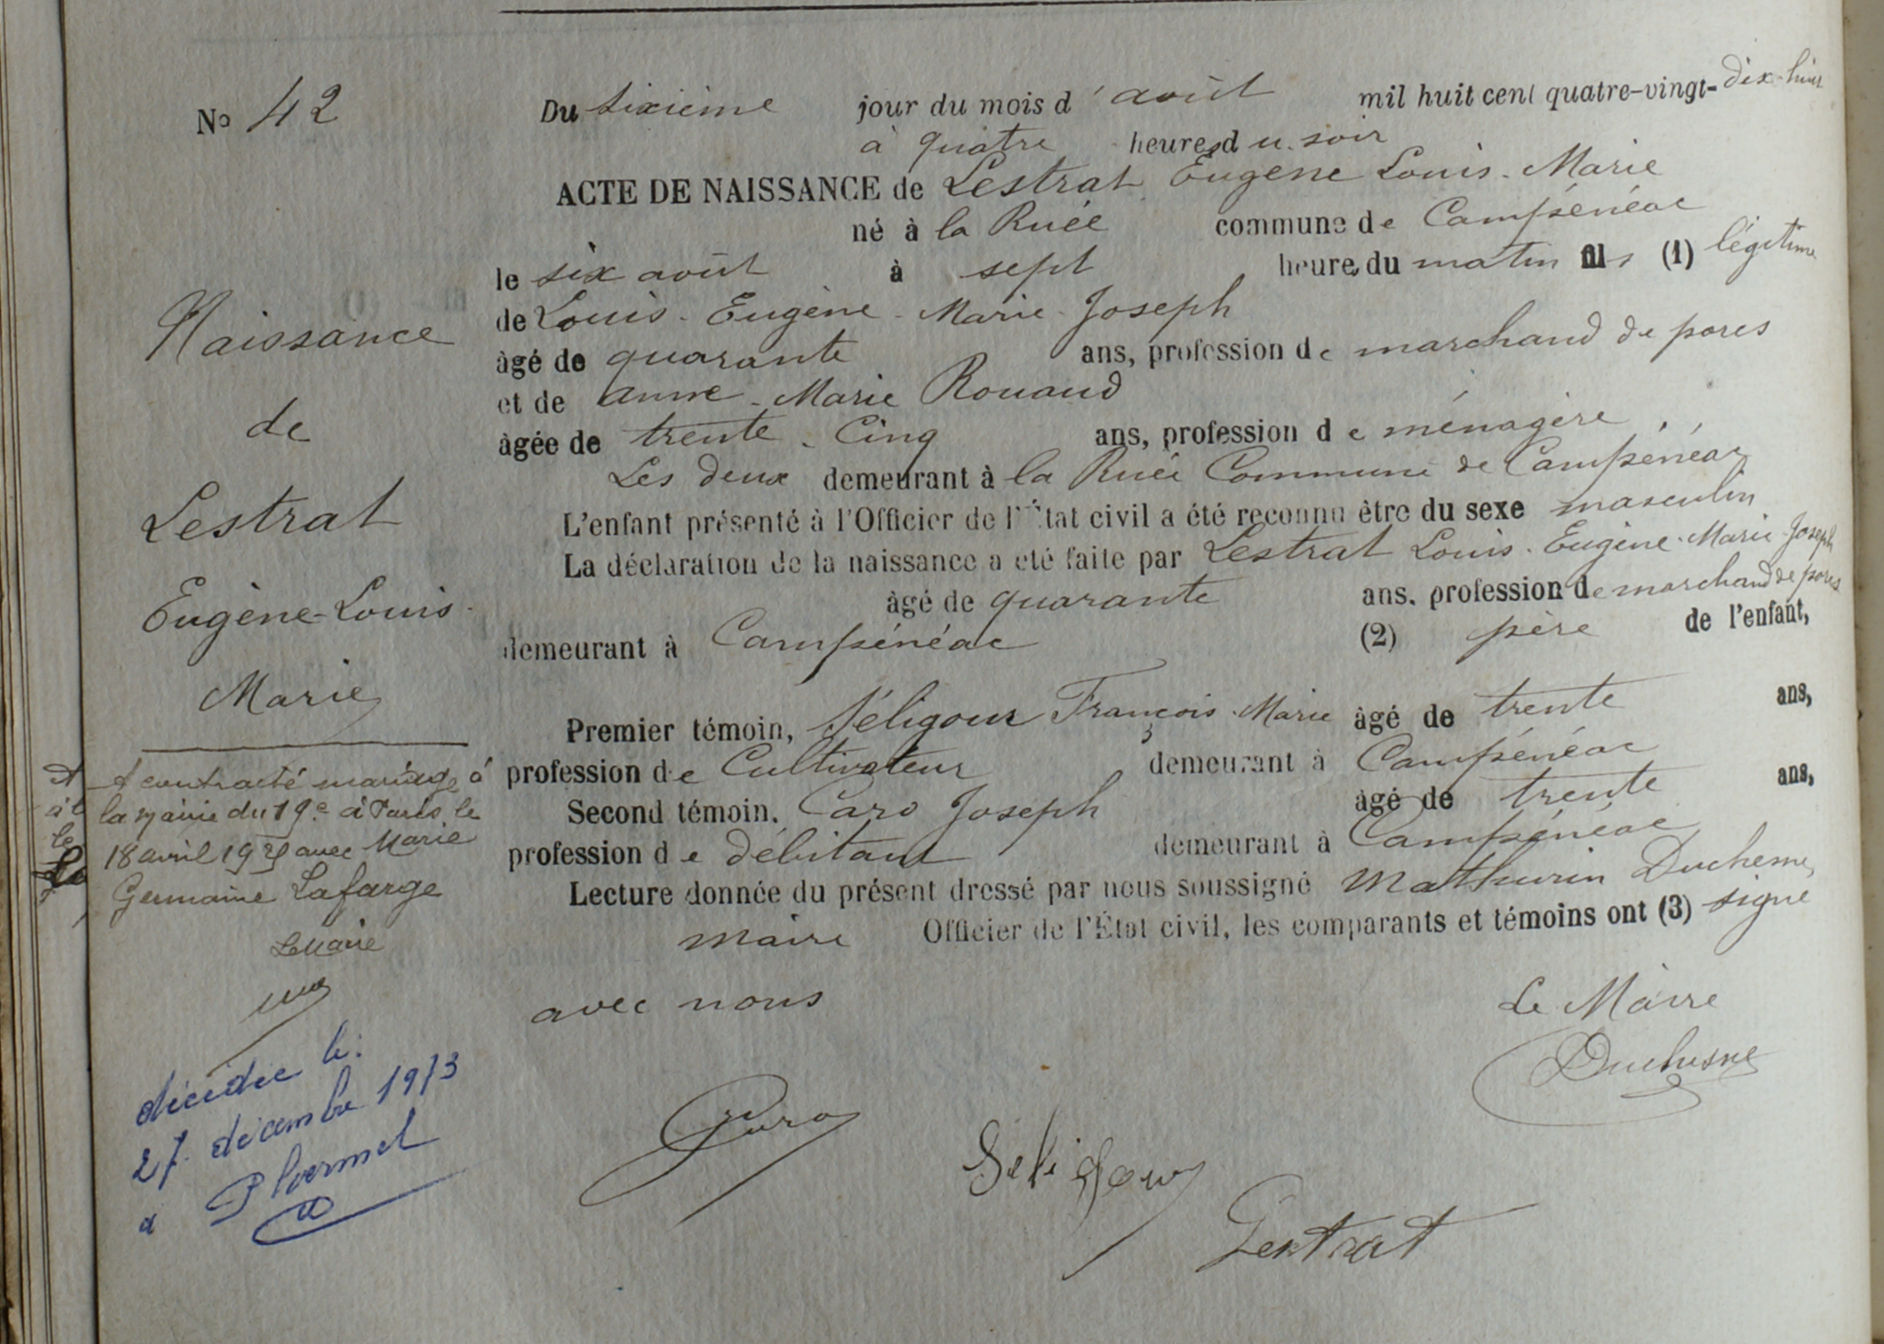 No 42
Du sixième jour du mois d'août mil huit cent quatre-vingt-dix-huit
à quatre heures du soir
ACTE DE NAISSANCE de Lestrat Eugène Louis-Marie
né à la Ruée commune de Campénéac
le six août à sept heure du matin fils (1) légitime
de Louis-Eugène-Marie-Joseph
âgé de quarante ans, profession de marchand de porcs
et de anne-Marie Rouaud
âgée de trente-Cinq ans, profession de ménagère
Les deux demeurant à la Ruée Commune de Campénéac
L'enfant présenté à l'Officier de l'État civil a été reconnu être du sexe masculin
La déclaration de la naissance a été faite par Lestrat Louis-Eugène-Marie-Joseph
âgé de quarante ans, profession de marchand de porcs
demeurant à Campénéac (2) père de l'enfant,
Premier témoin, Séligour François-Marie âgé de trente ans,
profession de Cultivateur demeurant à Campénéac
Second témoin, Caro Joseph âgé de trente ans,
profession de débitant demeurant à Campénéac
Lecture donnée du présent dressé par nous soussigné Mathurin Duchesne,
maire Officier de l'État civil, les comparants et témoins ont (3) signé
avec nous
Le Maire
Duchesne
Caro
Seligour
Lestrat
Naissance
de
Lestrat
Eugène-Louis-
Marie
A contracté mariage à
la mairie du 19e à Paris, le
18 avril avec Marie
Germaine Lafarge
Le Maire
décédée le:
27 décembre 1973
à Ploermel